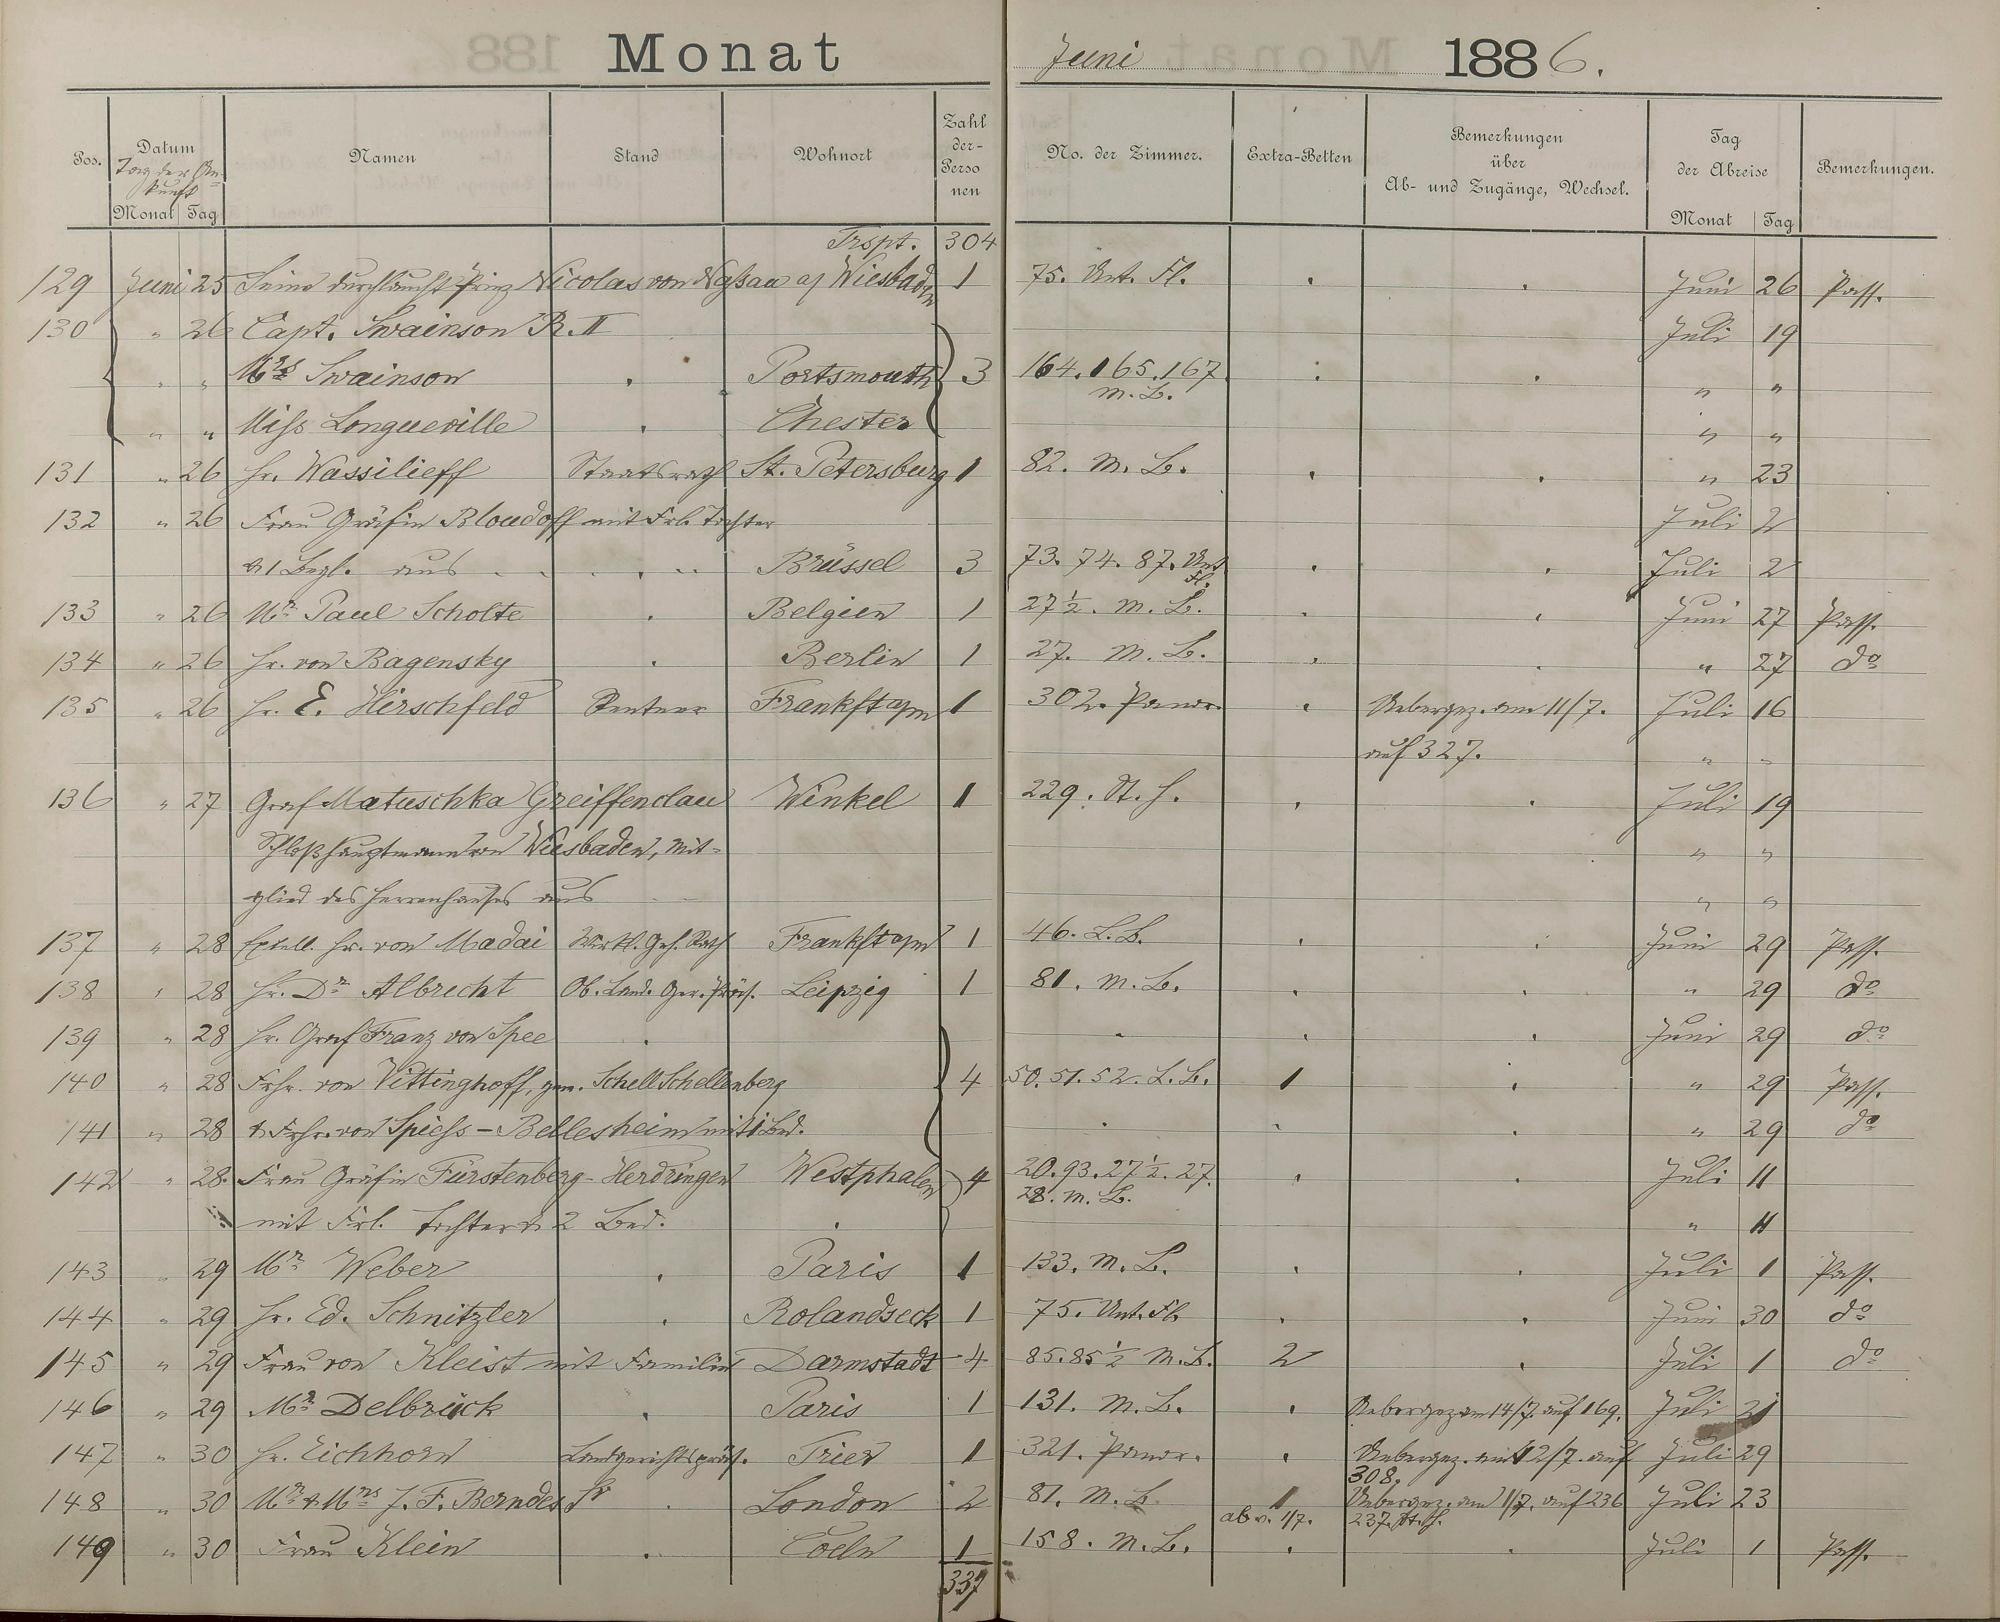 Monat Juni 1886.
Pos. Datum Namen Stand Wohnort Zahl der Personen No. der Zimmer. Extra-Betten Bemerkungen über Ab- und Zugänge, Wechsel. Tag der Abreise Bemerkungen.
Tag der Ankunft
Monat Tag Monat Tag
Trspt. 304
129 Juni 25 Seine Durchlaucht Prinz Nicolas von Nassau a/ Wiesbaden 1 75. Unt. Fl. Juni 26 Pass.
130 " 26 Capt. Swainson R. Juli 19
" " Mrs Swainson Portsmouth 3 164. 165. 167 m. B. " "
" " Miss Longueville Chester " "
131 " 26 Hr. Wassilieff Staatsrath St. Petersburg 1 82. M. B. " 23
132 " 26 Frau Gräfin Bloudoff mit Frl. Tochter Juli 2
& 1 Begl. aus Brüssel 3 73. 74. 87. Unt. Fl. Juli 2
133 " 26 Mr Paul Scholte Belgien 1 27 1/2. M. B. Juni 27 Pass.
134 " 26 Hr. von Bagensky Berlin 1 27. M. B. " 27 do
135 " 26 Hr. E. Hirschfeld Rentner Frankft a/m 1 302. Panor. Uebergez. am 11/7. Juli 16
auf 327. " "
136 " 27 Graf Matuschka Greiffenclau Winkel 1 229. St. H. Juli 19
Schloßhauptmann von Wiesbaden, Mit- " "
glied des Herrenhauses aus " "
137 " 28 Excell. Hr. von Madai Wirkl. Geh. Rath Frankft a/m 1 46. L. B. Juni 29 Pass.
138 " 28 Hr. Dr Albrecht Ob. Land. Ger. Präs. Leipzig 1 81. M. B. " 29 do
139 " 28 Hr. Graf Franz von Spee Juni 29 do
140 " 28 Frhr. von Vittinghoff, gen. Schell Schellenberg 4 50. 51. 52. L. B. 1 " 29 Pass.
141 " 28 & Frhr. von Spiess-Bellesheim mit 1 Bed. " 29 do
142 " 28. Frau Gräfin Fürstenberg-Herdringen Westphalen 4 20. 93. 27 1/2. 27. 28. M. B. Juli 11
mit Frl. Tochter & 2 Bed. " 11
143 " 29 Mr Weber Paris 1 133. M. B. Juli 1 Pass.
144 " 29 Hr. Ed. Schnitzler Rolandseck 1 75. Unt. Fl. Juni 30 do
145 " 29 Frau von Kleist mit Familie Darmstadt 4 85. 85 1/2 M. B. 2 Juli 1 do
146 " 29 Mr Delbrück Paris 1 131. M. B. Uebergez am 14/7. auf 169. Juli 21
147 " 30 Hr. Eichhorn Landgerichtspräs. Trier 1 321. Panor. Uebergez. am 12/7. auf 308. Juli 29
148 " 30 Mr & Mrs J. F. Berndes Sr London 2 81. M. B. 1 ab v. 1/7. Uebergez. am 1/7. auf 236 237. St. H. Juli 23
149 " 30 Frau Klein Coeln 1 158. M. B. Juli 1 Pass.
337